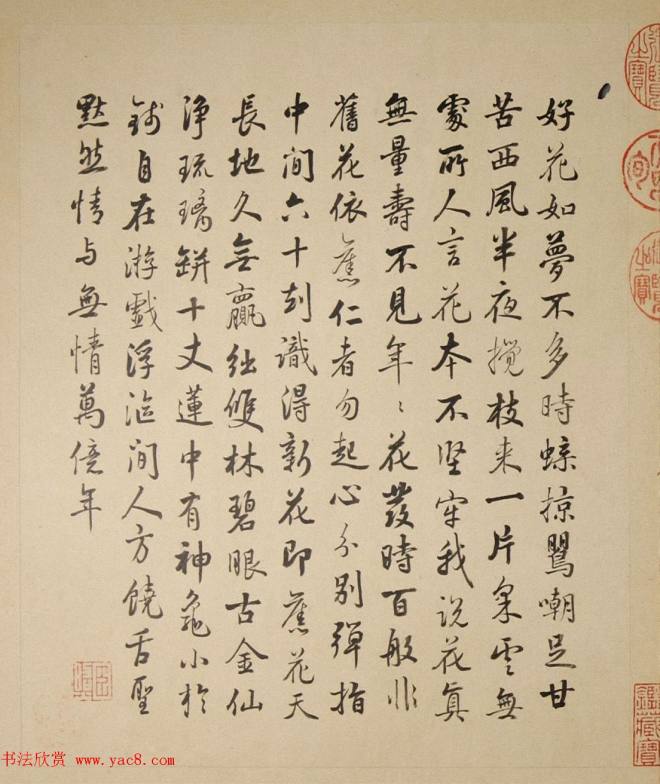 好花如夢不多時蜂掠鸎嘲足甘
苦西風半夜攪枝来一片雲無
處所人言花本不坚牢我説花真
無量壽不見年〻花發時百般非
舊花依舊仁者勿起心分别彈指
中間六十刻識得新花即舊花天
長地久無贏絀雙林碧眼古金仙
淨琉璃缾十丈蓮中有神龜小於
錢自在游戲浮漚間人方饒舌聖
默然情与無情萬億年
鑑藏寶
书法欣赏 www.yac8.com